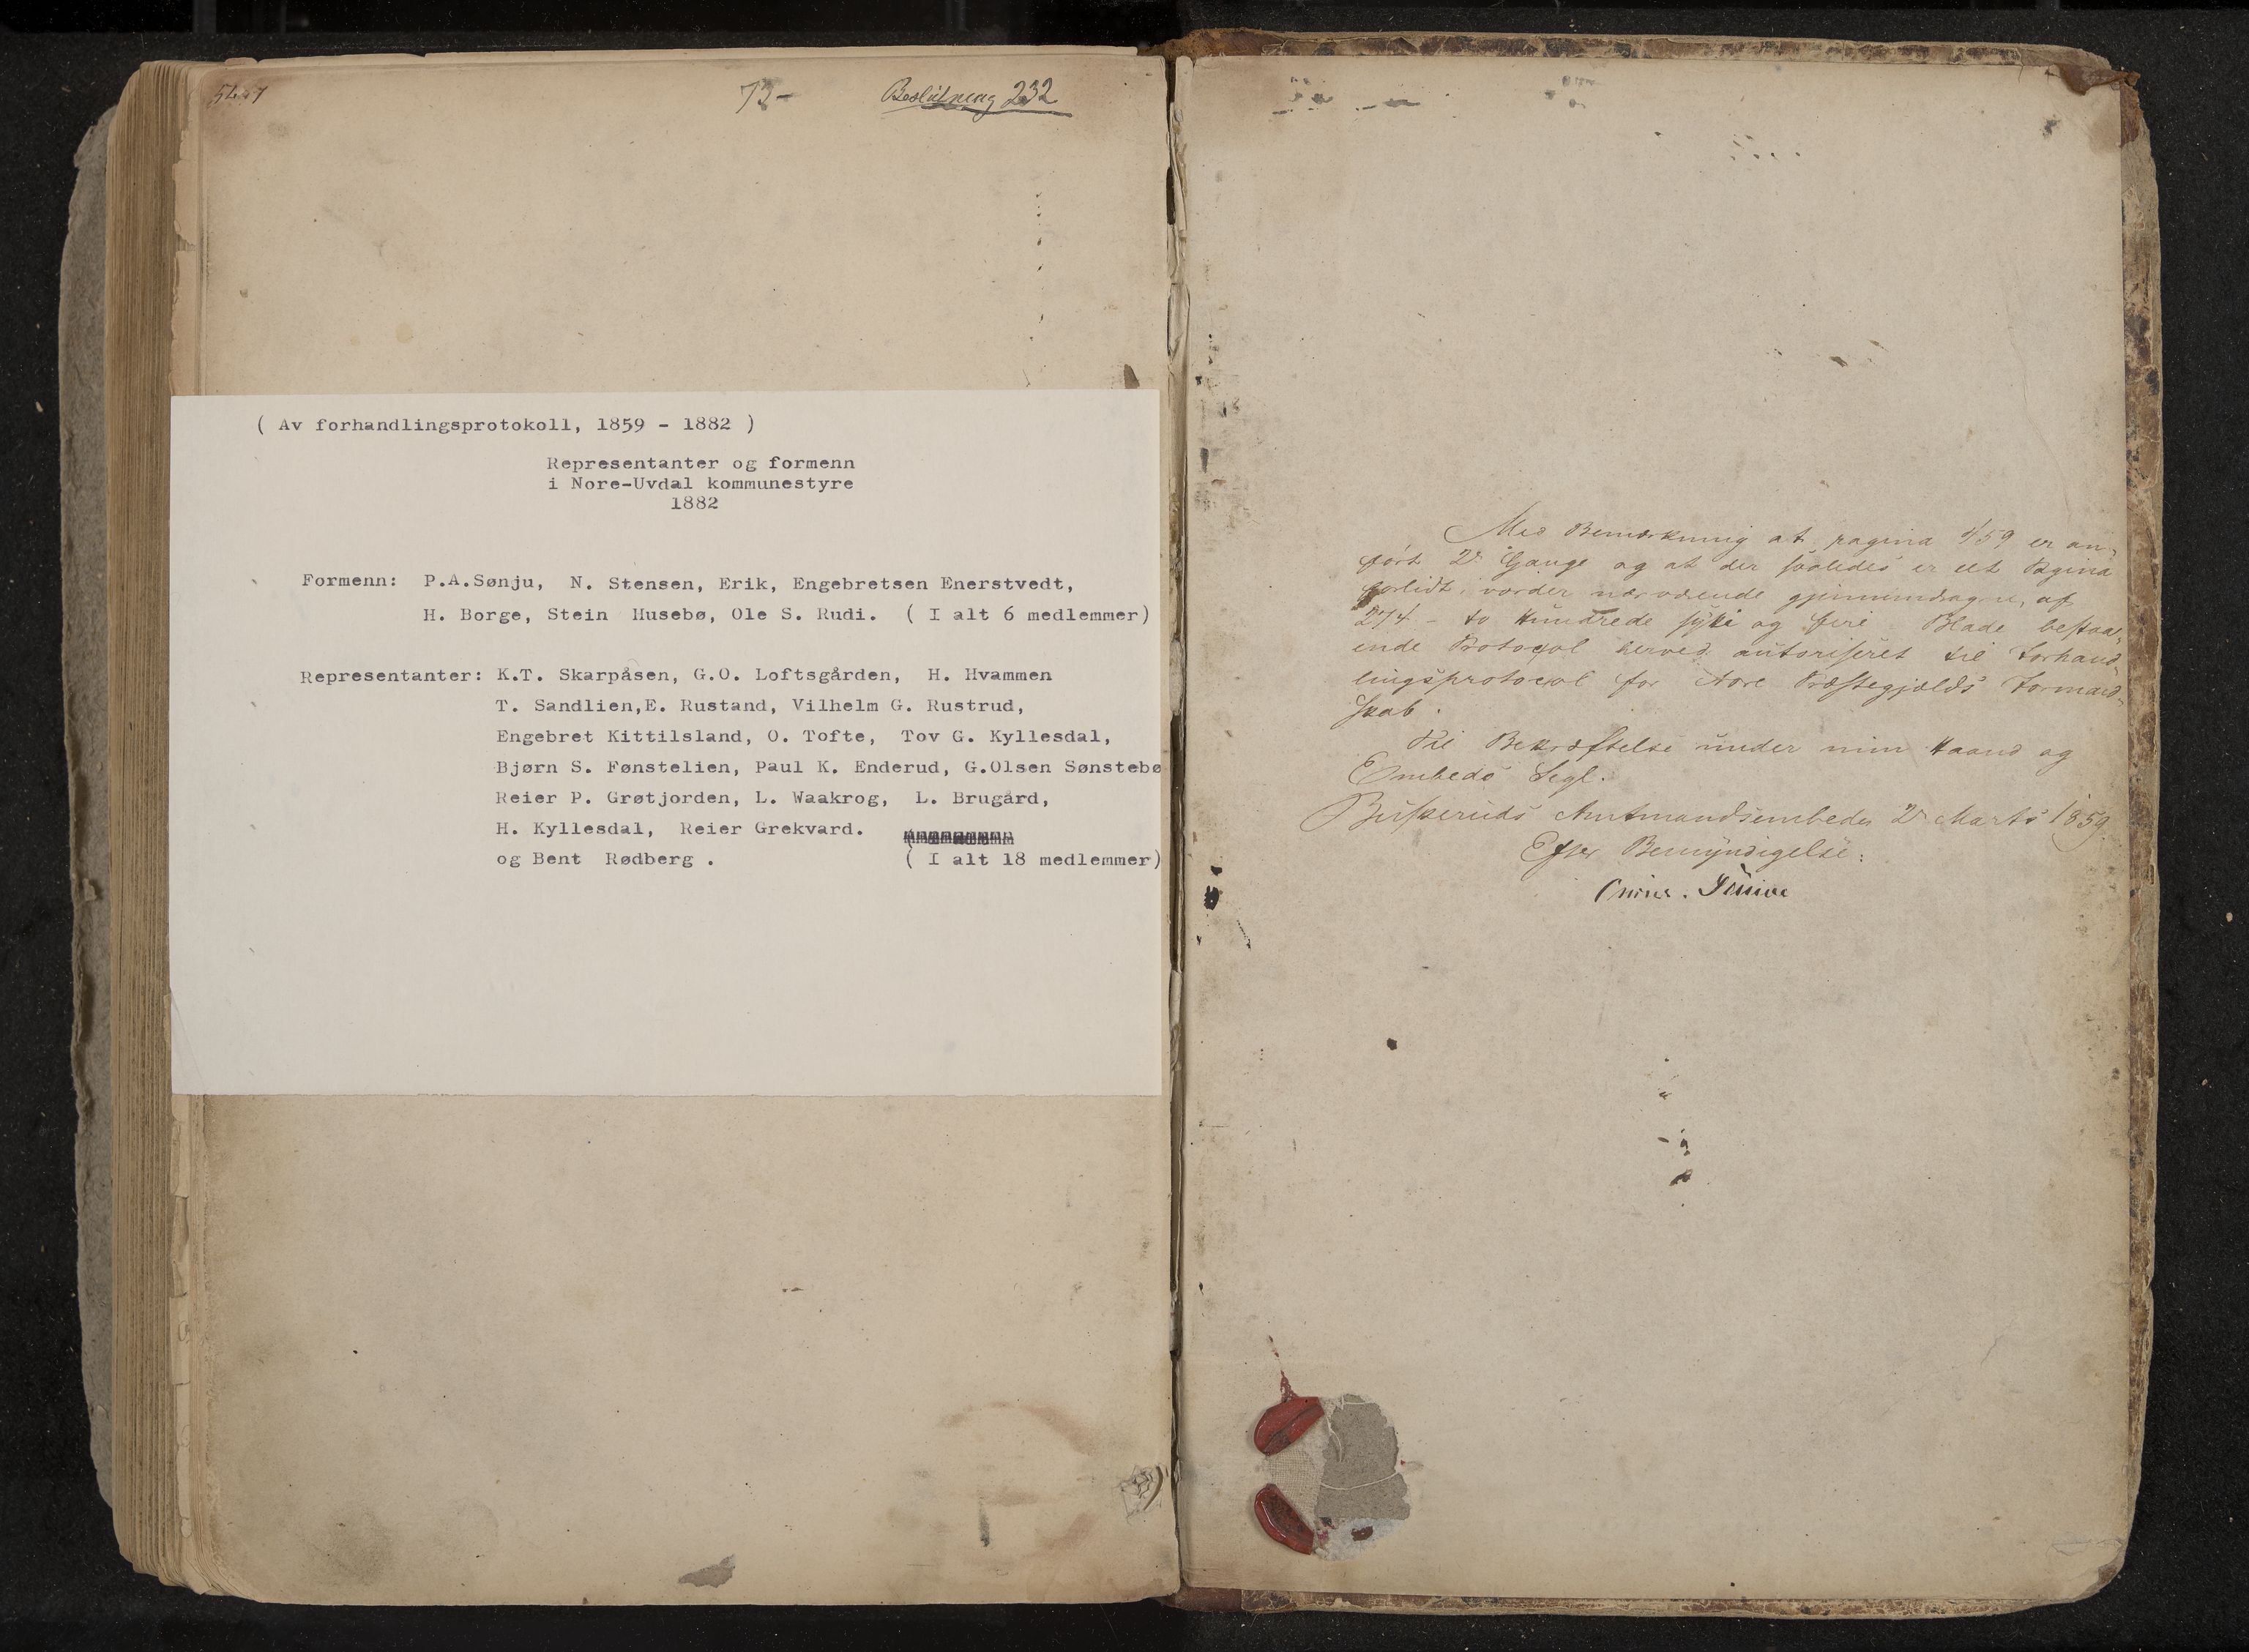 73-
Beslutning 232
( Av forhandlingsprotokoll, 1859 - 1882 )
Representanter og formenn
i Nore-Uvdal kommunestyre
1882
Formenn: P.A.Sønju, N. Stensen, Erik, Engebretsen Enerstvedt,
H. Borge, Stein Husebø, Ole S. Rudi. ( I alt 6 medlemmer)
Representanter: K.T. Skarpåsen, G.O. Loftsgården, H. Hvammen
T. Sandlien,E. Rustand, Vilhelm G. Rustrud,
Engebret Kittilsland, O. Tofte, Tov G. Kyllesdal,
Bjørn S. Fønstelien, Paul K. Enderud, G.Olsen Sønstebø
Reier P. Grøtjorden, L. Waakrog, L. Brugård,
H. Kyllesdal, Reier Grekvard.
og Bent Rødberg . ( I alt 18 medlemmer)
Med Bemærkning at pagina 459 er an-
ført 2de Gange og at der saaledes er eet Pagina
forlidt, vorder nærværende gjennemdragne, af
274 - to Hundrede sytti og fire Blade bestaa-
ende Protocol herved autoriseret til Forhand-
lingsprotocol for Nore Præstegjælds Formand-
skab.
Til Bekræftelse under min Haand og
Embeds Segl.
Buskeruds Amtmandsembede 2 Marts 1859.
Efter Bemyndigelse: